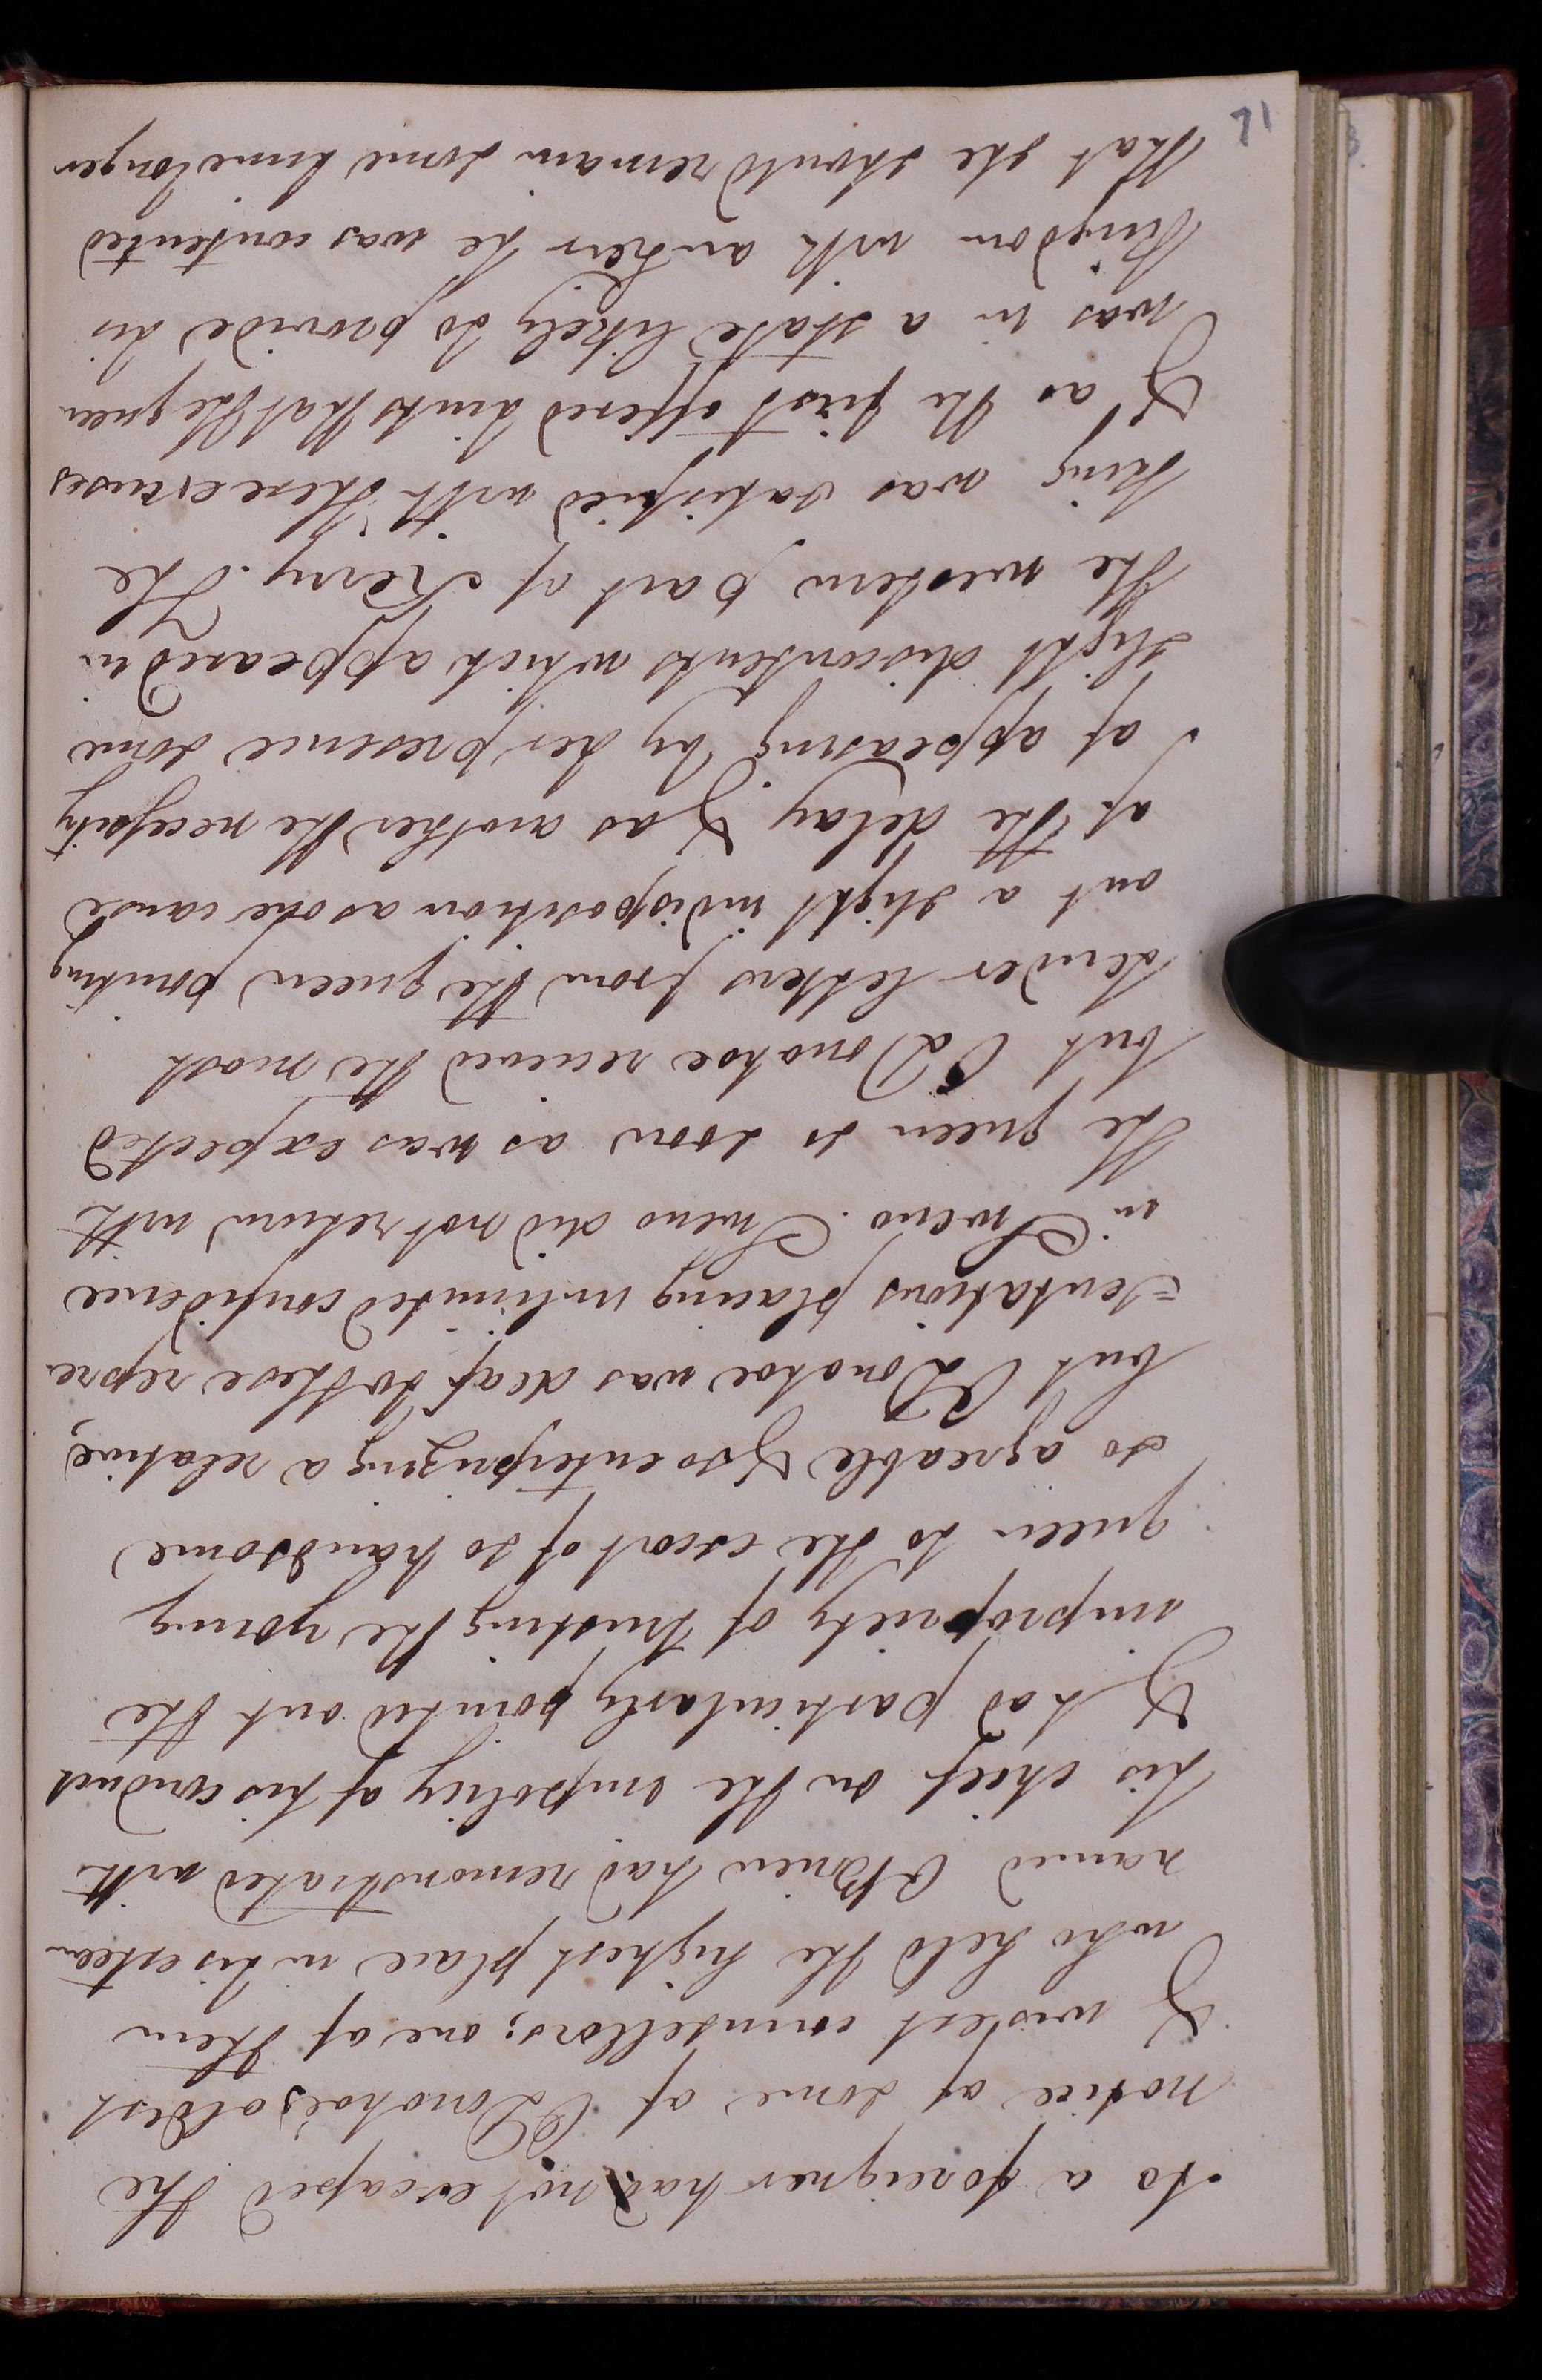 to a foreigner had not escaped the
notice of some of O'Donohoe's oldest
& wisest counsellors; one of them
who held the highest place in his esteem
named O'Brien had remonstrated with
his chief on the impolicy of his conduct
& had particularly pointed out the
impropriety of trusting the young
queen to the escort of so handsome
so agreable & so enterprizing a relative,
but O'Donohoe was deaf to these repre
=sentations placing unlimited confidence
in Sweno. Sweno did not return with
the queen so soon as was expected
but O'Donohoe recieved the most
tender letters from the queen pointing
out a slight indisposition as one cause
of the delay & as another the necessity
of appeasing by her presence some
slight discontents which appeared in
the western part of Kerry. The
king was satisfied with these excuses
& as the first offered hints that the queen
was in a state likely to provide his
kingdom with an heir he was contented
that she should remain some time longer
71